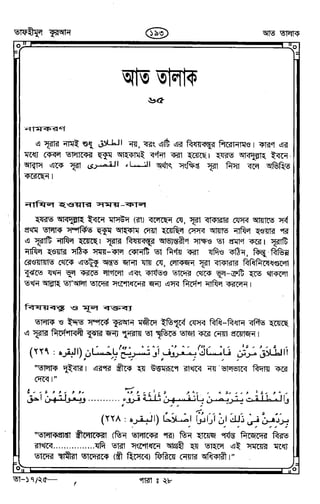 তাফহীমুল কুরআন ১৯৩ আত তালাক
আত তালাক
৬৫
নামকরণ
এ সূরার নামই শুধু الطلاق নয়, বরং এটি এর বিষয়বস্তুর শিরোনামও। কারণ এর
মধ্যে কেবল তালাকের হুকুম আহকামই বর্ণনা করা হয়েছে। হযরত আবদুল্লাহ ইবনে
মাসউদ একে سورة النساء القصرى অর্থাৎ সংক্ষিপ্ত সূরা নিসা বলে অভিহিত
করেছেন।
নাযিল হওয়ার সময়-কাল
হযরত আবদুল্লাহ ইবনে মাসউদ (রা) বলেছেন যে, সূরা বাকারার যেসব আয়াতে সর্ব
প্রথম তালাক সম্পর্কিত হুকুম আহকাম দেয়া হয়েছিল সেসব আয়াত নাযিল হওয়ার পর
এ সূরাটি নাযিল হয়েছে। সূরার বিষয়বস্তুর আভ্যন্তরীণ সাক্ষ্যও তা প্রমাণ করে। সূরাটি
নাযিল হওয়ার সঠিক সময়-কাল কোনটি তা নির্ণয় করা যদিও কঠিন, কিন্তু বিভিন্ন
রেওয়ায়াত থেকে এতটুকু অন্তত জানা যায় যে, লোকজন সূরা বাকারার বিধিনিষেধগুলো
বুঝতে যখন ভুল করতে লাগলো এবং কার্যতও তাদের থেকে ভুল-ত্রুটি হতে থাকলো
তখন আল্লাহ তা'আলা তাদের সংশোধনের জন্য এসব নির্দেশ নাযিল করলেন।
বিষয়বস্তু ও মূল বক্তব্য
তালাক ও ইদ্দত সম্পর্কে কুরআন মজীদে ইতিপূর্বে যেসব বিধি-বিধান বর্ণিত হয়েছে
এ সূরার নির্দেশাবলী বুঝার জন্য পুনরায় তা স্মৃতিতে তাজা করে নেয়া প্রয়োজন।
اَلطَّلَاقُ مَرَّتٰنِ فَاِمْسَاكٌۢ بِمَعْرُوْفٍ اَوْ تَسْرِيْحٌۢ بِاِحْسَانٍ (البقره : ٢٢٩)
"তালাক দুইবার। এরপর স্ত্রীকে হয় উত্তমরূপে রাখবে নয় ভালভাবে বিদায় করে
দেবে।"
وَالْمُطَلَّقٰتُ يَتَرَبَّصْنَ بِاَنْفُسِهِنَّ ثَلٰثَةَ قُرُوْءٍ .......... وَبُعُوْلَتُهُنَّ اَحَقُّ
بِرَدِّهِنَّ فِىْ ذٰلِكَ اِنْ اَرَادُوْٓا اِصْلَاحًا (البقره : ٢٢٨)
"তালাকপ্রাপ্তা স্ত্রীলোকেরা (তিন তালাকের পর) তিন হায়েজ পর্যন্ত নিজেদের বিরত
রাখবে..................যদি তারা সংশোধনে আগ্রহী হয় তাহলে এই সময়ের মধ্যে
তাদের স্বামীরা তাদেরকে (স্ত্রী হিসেবে) ফিরিয়ে নেয়ার অধিকারী।"
তা-১৭/২৫— পারা : ২৮